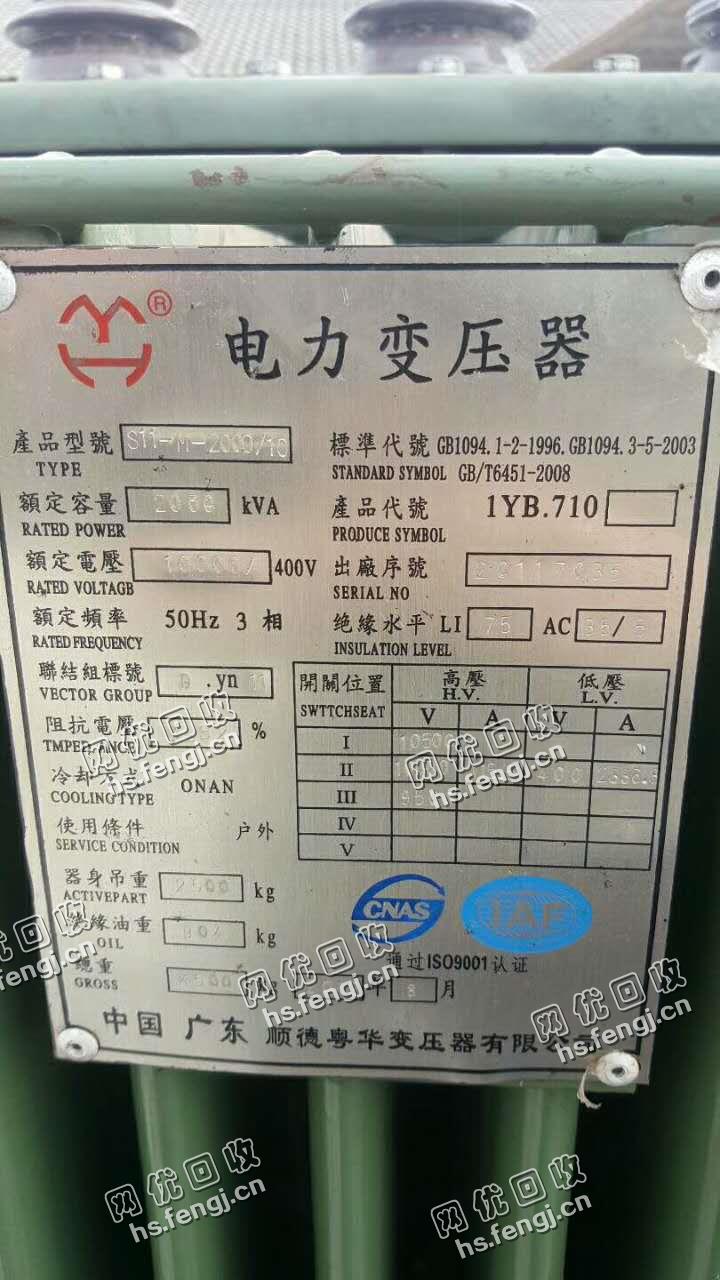 ®
电力变压器
產品型號 S11-M-2000/10
TYPE
標準代號 GB1094.1-2-1996.GB1094.3-5-2003
STANDARD SYMBOL GB/T6451-2008
額定容量 2000 kVA
RATED POWER
產品代號 1YB.710
PRODUCE SYMBOL
額定電壓 10000/ 400V
RATED VOLTAGB
出廠序號
SERIAL NO
額定頻率 50Hz 3 相
RATED FREQUENCY
绝緣水平 LI 75 AC 35/5
INSULATION LEVEL
聯結組標號 D.yn 11
VECTOR GROUP
開關位置 高壓 低壓
SWTTCHSEAT H.V. L.V.
V A V A
阻抗電壓 %
TMPEDANCE
I 10500
冷却方式 ONAN
COOLING TYPE
II 400
III
使用條件 户外
SERVICE CONDITION
IV
V
器身吊重 2500 kg
ACTIVEPART
绝緣油重 kg
OIL
CNAS
IAF
通过ISO9001认证
總重 4500 kg
GROSS
年 8 月
中国 广东 顺德粤华变压器有限公司
网优回收
hs.fengj.cn
网优回收
hs.fengj.cn
网优回收
hs.fengj.cn
网优回收
hs.fengj.cn
网优回收
hs.fengj.cn
网优回收
hs.fengj.cn
网优回收
hs.fengj.cn